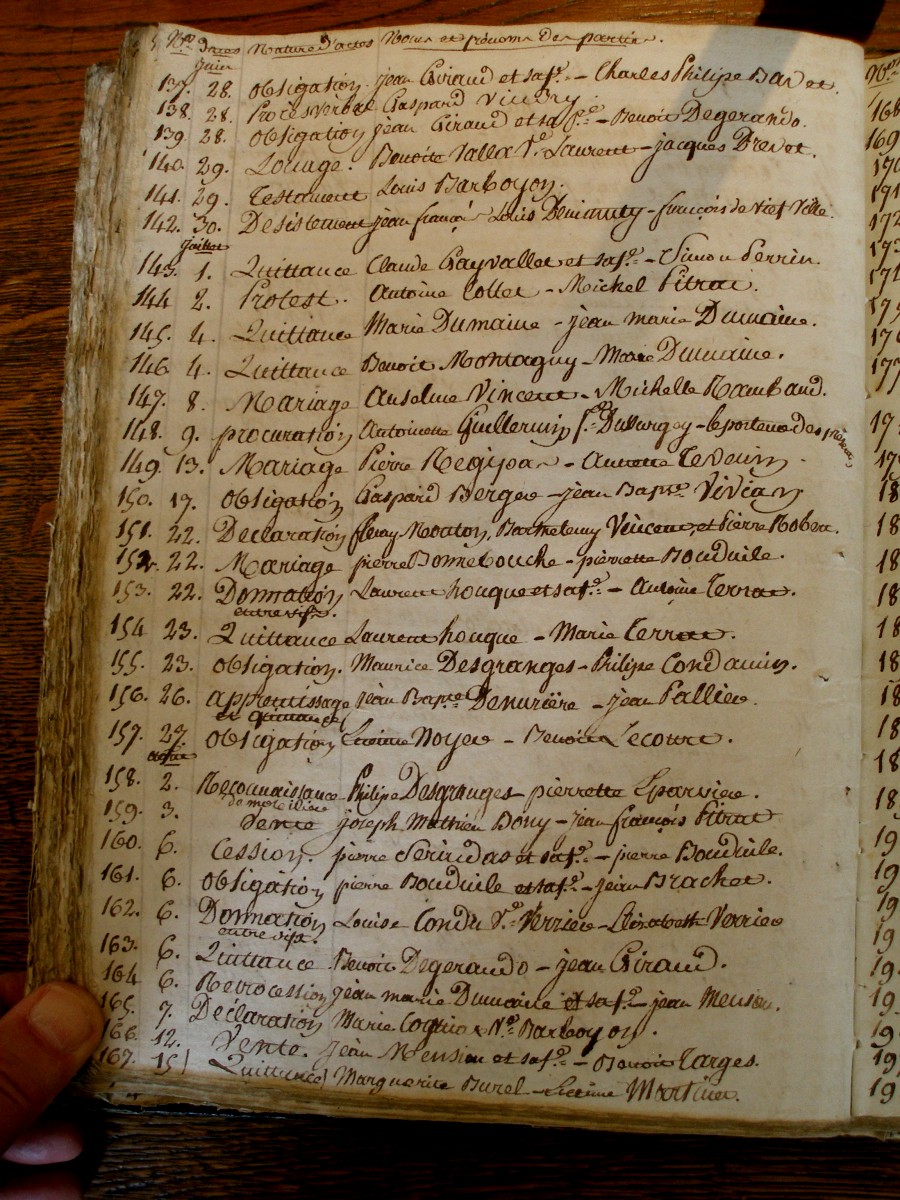 Nos Dates Nature d'actes Noms et prénoms des parties.
Juin
137. 28. Obligation. jean Giraud et sa fe. - Charles Philipe Bavet.
138. 28. Procès verbal Gaspard Vindry.
139. 28. Obligation jean Giraud et sa fe. - Benoit Degerando.
140. 29. Louage. Benoite Valla Ve. Laurent - jacques Brevet.
141. 29. Testament Louis Barboyon.
142. 30. Desistement jean françois Louis - françois de Vief Ville.
juillet
143. 1. Quittance Claude Gayvallet et sa fe. - Simon Perrin.
144 2. Protest. Antoine Collet - Michel Pitrat.
145. 4. Quittance Marie Dumaine - jean marie Dumaine.
146 4. Quittance Benoit Montagny - Marie Dumaine.
147. 8. Mariage Anselme Vincent - Michelle Rambaud.
148. 9. procuration Antoinette Guillermin fe. - le porteur des présentes
149. 13. Mariage Pierre - Annette
150. 17. Obligation Gaspard Berger - jean Bapte. Vivian
151. 22. Déclaration fleury Mouton, Barthelemy Vincent, et Pierre Robert.
152. 22. Mariage pierre Bonnebouche - pierrette Bouduile.
153. 22. Donnation Laurent houque et sa fe. - Antoine Terrat.
entre vifs.
154 23. Quittance Laurent houque - Marie Terrat.
155. 23. Obligation. Maurice Desgranges - Philipe Condamin.
156. 26. apprentissage jean Bapte. Denurière - jean Pallier.
et quittance
157. 27. Obligation Noyer - Benoit Lecourt.
158. 2. Reconnaissance Philipe Desgranges - pierrette Eparvier.
de mobilier
159. 3. Vente joseph Mathieu Bony - jean françois Pitrat
160. 6. Cession. pierre et sa fe. - pierre Bouduile.
161. 6. Obligation pierre Bouduile et sa fe. - jean Brachet.
162. 6. Donnation Louise Condu Ve. Verrier - Elizabeth Verrier
entre vifs.
163. 6. Quittance Benoit Degerando - jean Giraud.
164 6. Retrocession jean marie Dumaine et sa fe. - jean
165. 7. Déclaration Marie Ve. Barboyon.
166. 12. Vente. jean et sa fe. - Benoit Targes.
167. 15 Quittance Marguerite Burel - Martin.
168
169
170
171
172
173
174
175
176
177